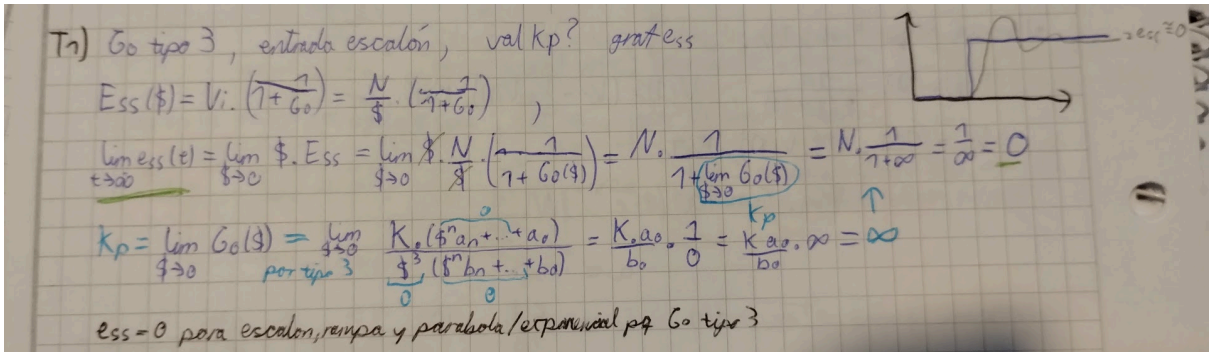 T1) Go tipo 3, entrada escalón, val Kp? graf ess
→ess≅0
Ess($) = Vi.(1/(1+Go)) = N/$ . (1/(1+Go)) ,
lim t→∞ ess(t) = lim $→0 $.Ess = lim $→0 $.N/$.(1/(1+Go($))) = N. 1/(1+lim $→0 Go($)) = N. 1/(1+∞) = 1/∞ = 0
Kp ↑
0
Kp = lim $→0 Go($) = lim $→0 K.($ⁿan+..+a0)/($³($ⁿbn+..+b0)) = K.a0/b0 . 1/0 = K a0/b0 . ∞ = ∞
por tipo 3
0 0
ess=0 para escalon, rampa y parabola/exponencial pq Go tipo 3